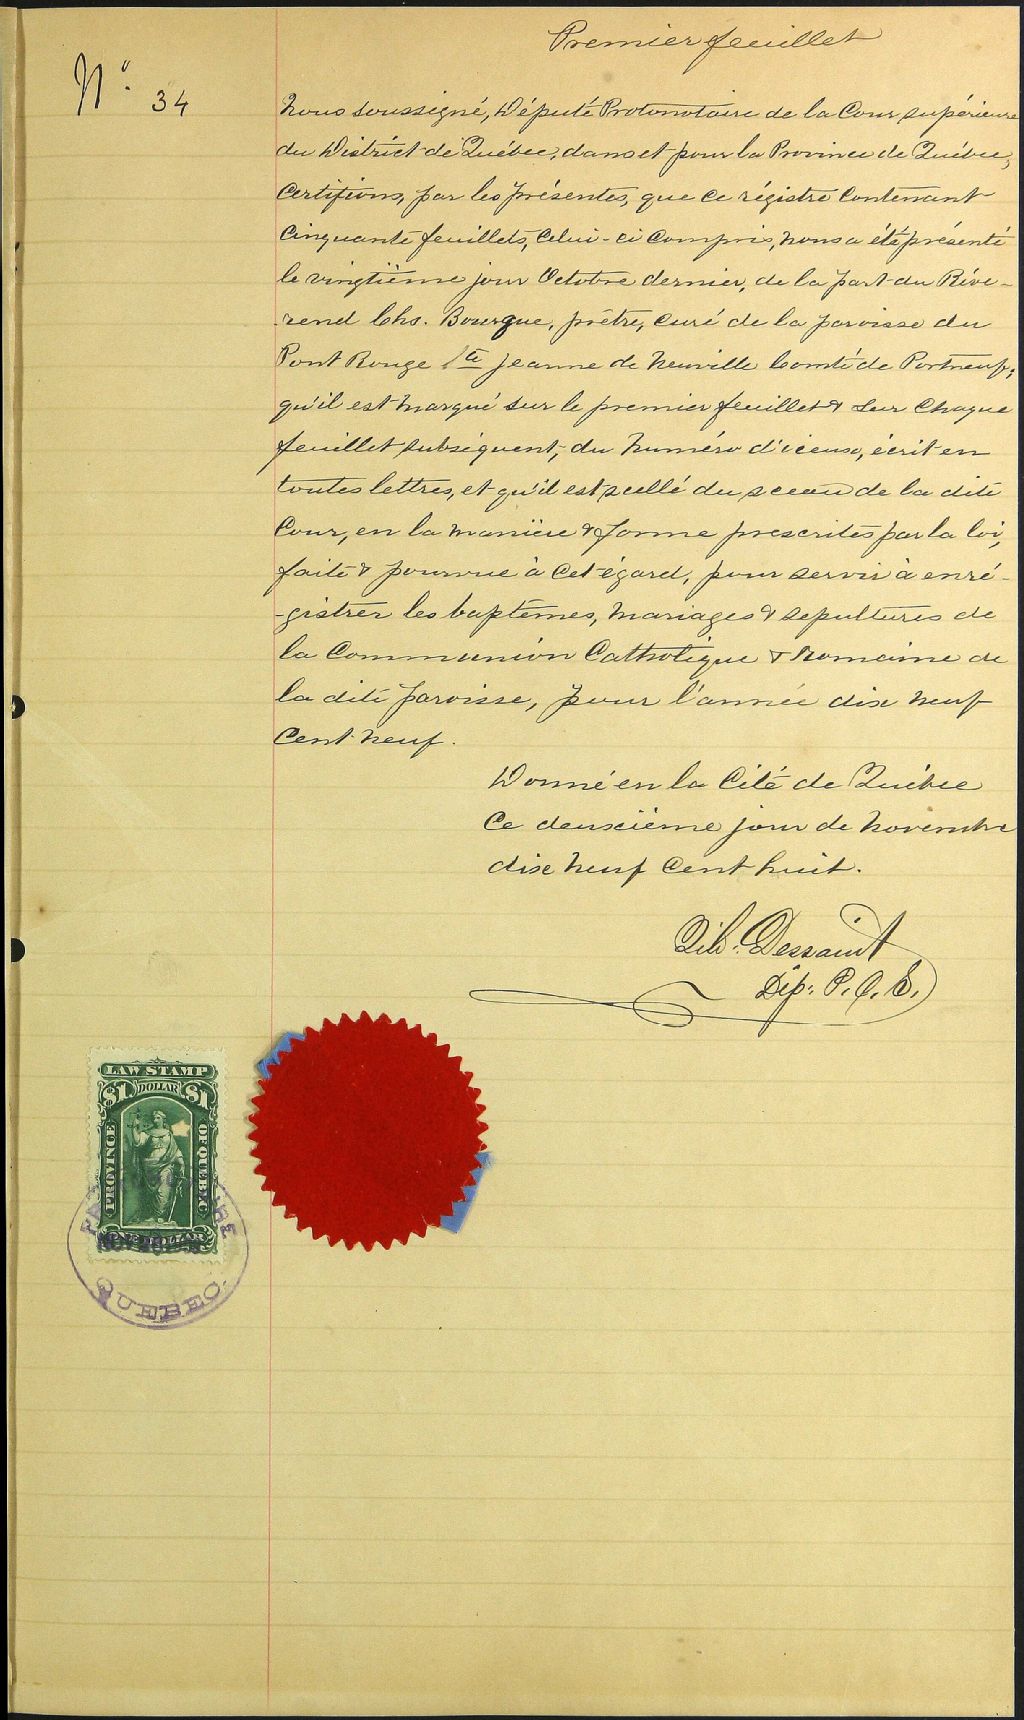 Premier feuillet
No. 34
Nous soussigné, Député Protonotaire de la Cour supérieure
du District de Québec, dans et pour la Province de Québec,
Certifions, par les présentes, que ce régistre contenant
Cinquante feuillets, celui-ci compris, nous a été présenté
le vingtième jour Octobre dernier, de la part du Révé-
-rend Chs. Bourque, prêtre, curé de la paroisse du
Pont Rouge Ste Jeanne de Neuville Comté de Portneuf;
qu'il est marqué sur le premier feuillet & sur chaque
feuillet subséquent, du numéro d'iceux, écrit en
toutes lettres, et qu'il est scellé du sceau de la dite
Cour, en la manière & forme prescrites par la loi,
faite & pourvue à cet égard, pour servir à enré-
-gistrer les baptêmes, mariages & sepultures de
la Communion Catholique & Romaine de
la dite paroisse, pour l'année dix neuf
Cent neuf.
Donné en la Cité de Québec
Ce deuxième jour de Novembre
dix neuf Cent huit.
Dessaint
Dép. P. C. S.
LAW STAMP
$1 DOLLAR $1
PROVINCE OF QUEBEC
ONE DOLLAR
QUEBEC